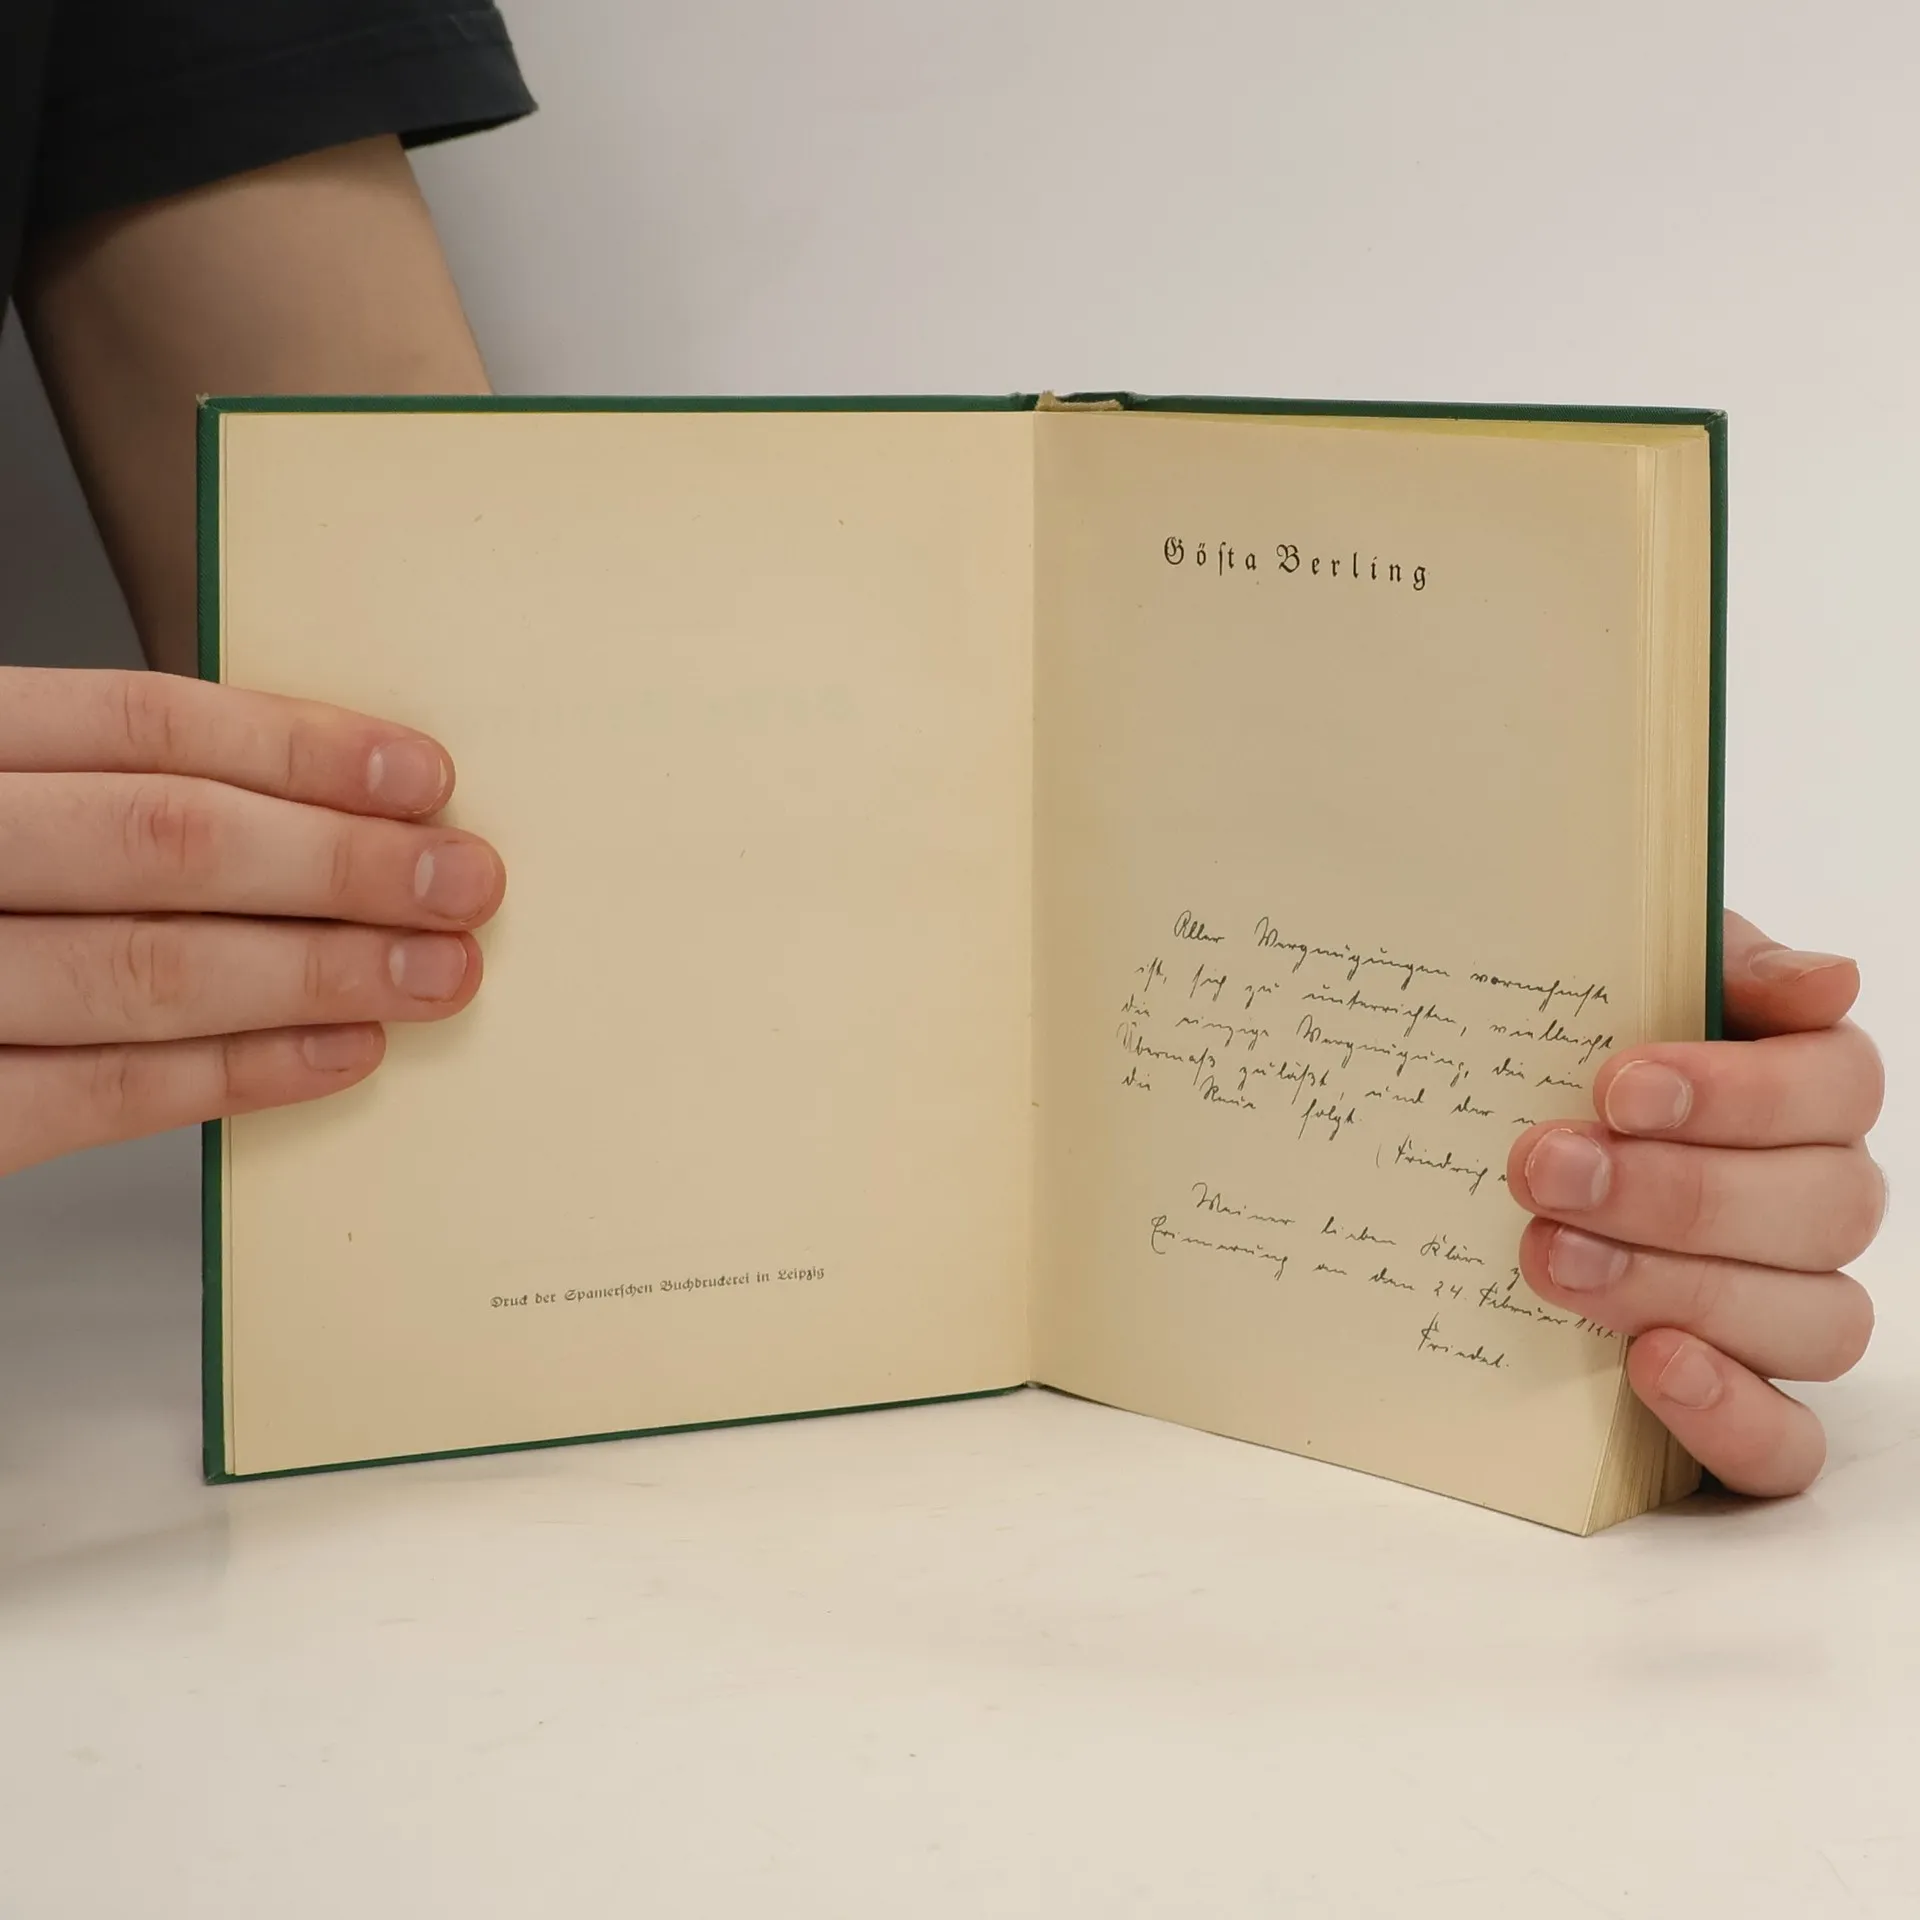 Druck der Spamerschen Buchdruckerei in Leipzig
Göſta Berling
Aller Vergnügungen vornehmste
ist, sich zu unterrichten, vielleicht
die einzige Vergnügung, die ein
Übermaß zuläßt, und der
die Reue folgt.
(Friedrich
Meiner lieben Kläre
Erinnerung an den 24. Februar
Friedel.